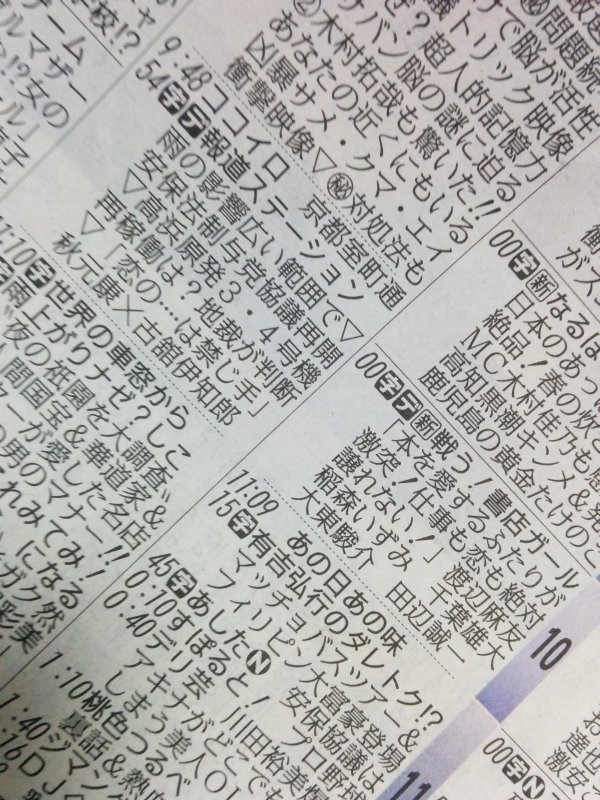 学校!?
ゲーム
ルマザー
!?女の
ル」
布子
問題続
で脳が活性
トリック映像
ぜ?超人的記憶力
サバン脳の謎に迫る
②木村拓哉も驚いた!!
あなたの近くにもいる
凶暴サメ・クマ・エイ
衝撃映像▽㊙対処法も
9:48 ココイロ 京都室町通
54 字デ報道ステーション
雨の影響広い範囲で▽
安保法制与党協議再開
▽高浜原発3・4号機
再稼働は?地裁が判断
▽「恋の…は禁じ手」
秋元康×古舘伊知郎
1:10 字世界の車窓から
字雨上がりナゼ?しこ
〝夜の祇園を大調査〟
人間国宝&華道家&
ターが愛した名店
の男のマナー!!
れみてみ!
になる
ガク然
彩美
00 字新なるほ
日本のあっ
春の炊き
絶品!
MC木村佳乃も
高知黒潮キンメ&
鹿児島の黄金たけのこ
00 字デ新戦う!書店ガール
「本を愛するふたりが
激突!仕事も恋も絶対
譲れない!」渡辺麻友
稲森いずみ 千葉雄大
大東駿介 田辺誠一
10
11:09 あの日あの味
15 字有吉弘行のダレトク!?
マッチョバスツアー&
フィリピン大富豪登場
45 字あしたN 安保協議は
0:10 すぽると! プロ野球
0:40 デリ芸 川田裕美
アキナがどこでも
しまう美人OL
1:10 桃色つるべ
裏話&熱
1:40 ジマング
DJ
11
00 字デ
激安